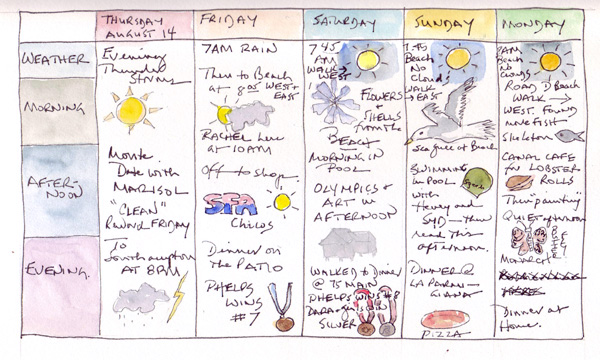 THURSDAY
AUGUST 14
FRIDAY
SATURDAY
SUNDAY
MONDAY
WEATHER
MORNING
AFTER-
NOON
EVENING.
Evening
Thunder
Storms
Movie.
Date with
MARISOL
"CLEAN"
Round FRIDAY
To
Southampton
AT 8PM
7AM RAIN
Then to Beach
at 8:05 WEST +
EAST
RACHEL here
at 10AM
Off to shop.
Chicos
Dinner on
the PATIO
PHELPS
WINS
#7
7:45
AM
WALK
WEST
FLOWERS
SHELLS
from the
BEACH
MORNING IN
POOL
OLYMPICS +
ART IN
AFTERNOON
WALKED to Dinner
@ 75 MAIN
PHELPS WINS #8
SILVER
7:45
Beach
No
Clouds
WALK
→ EAST
Seagull at Beach
SWIMMING
in Pool
with
Henry and
SYD — then
read this
afternoon.
DINNER @
LA PARMA —
PIZZA
8AM
Beach
no
clouds
ROAD D Beach
WALK →
WEST. FOUND
more FISH
Skeletons
CANAL CAFE
for LOBSTER
ROLLS
Then "painting"
QUIET afternoon
MONARCH
BUTTERFLY
Dinner at
Home.